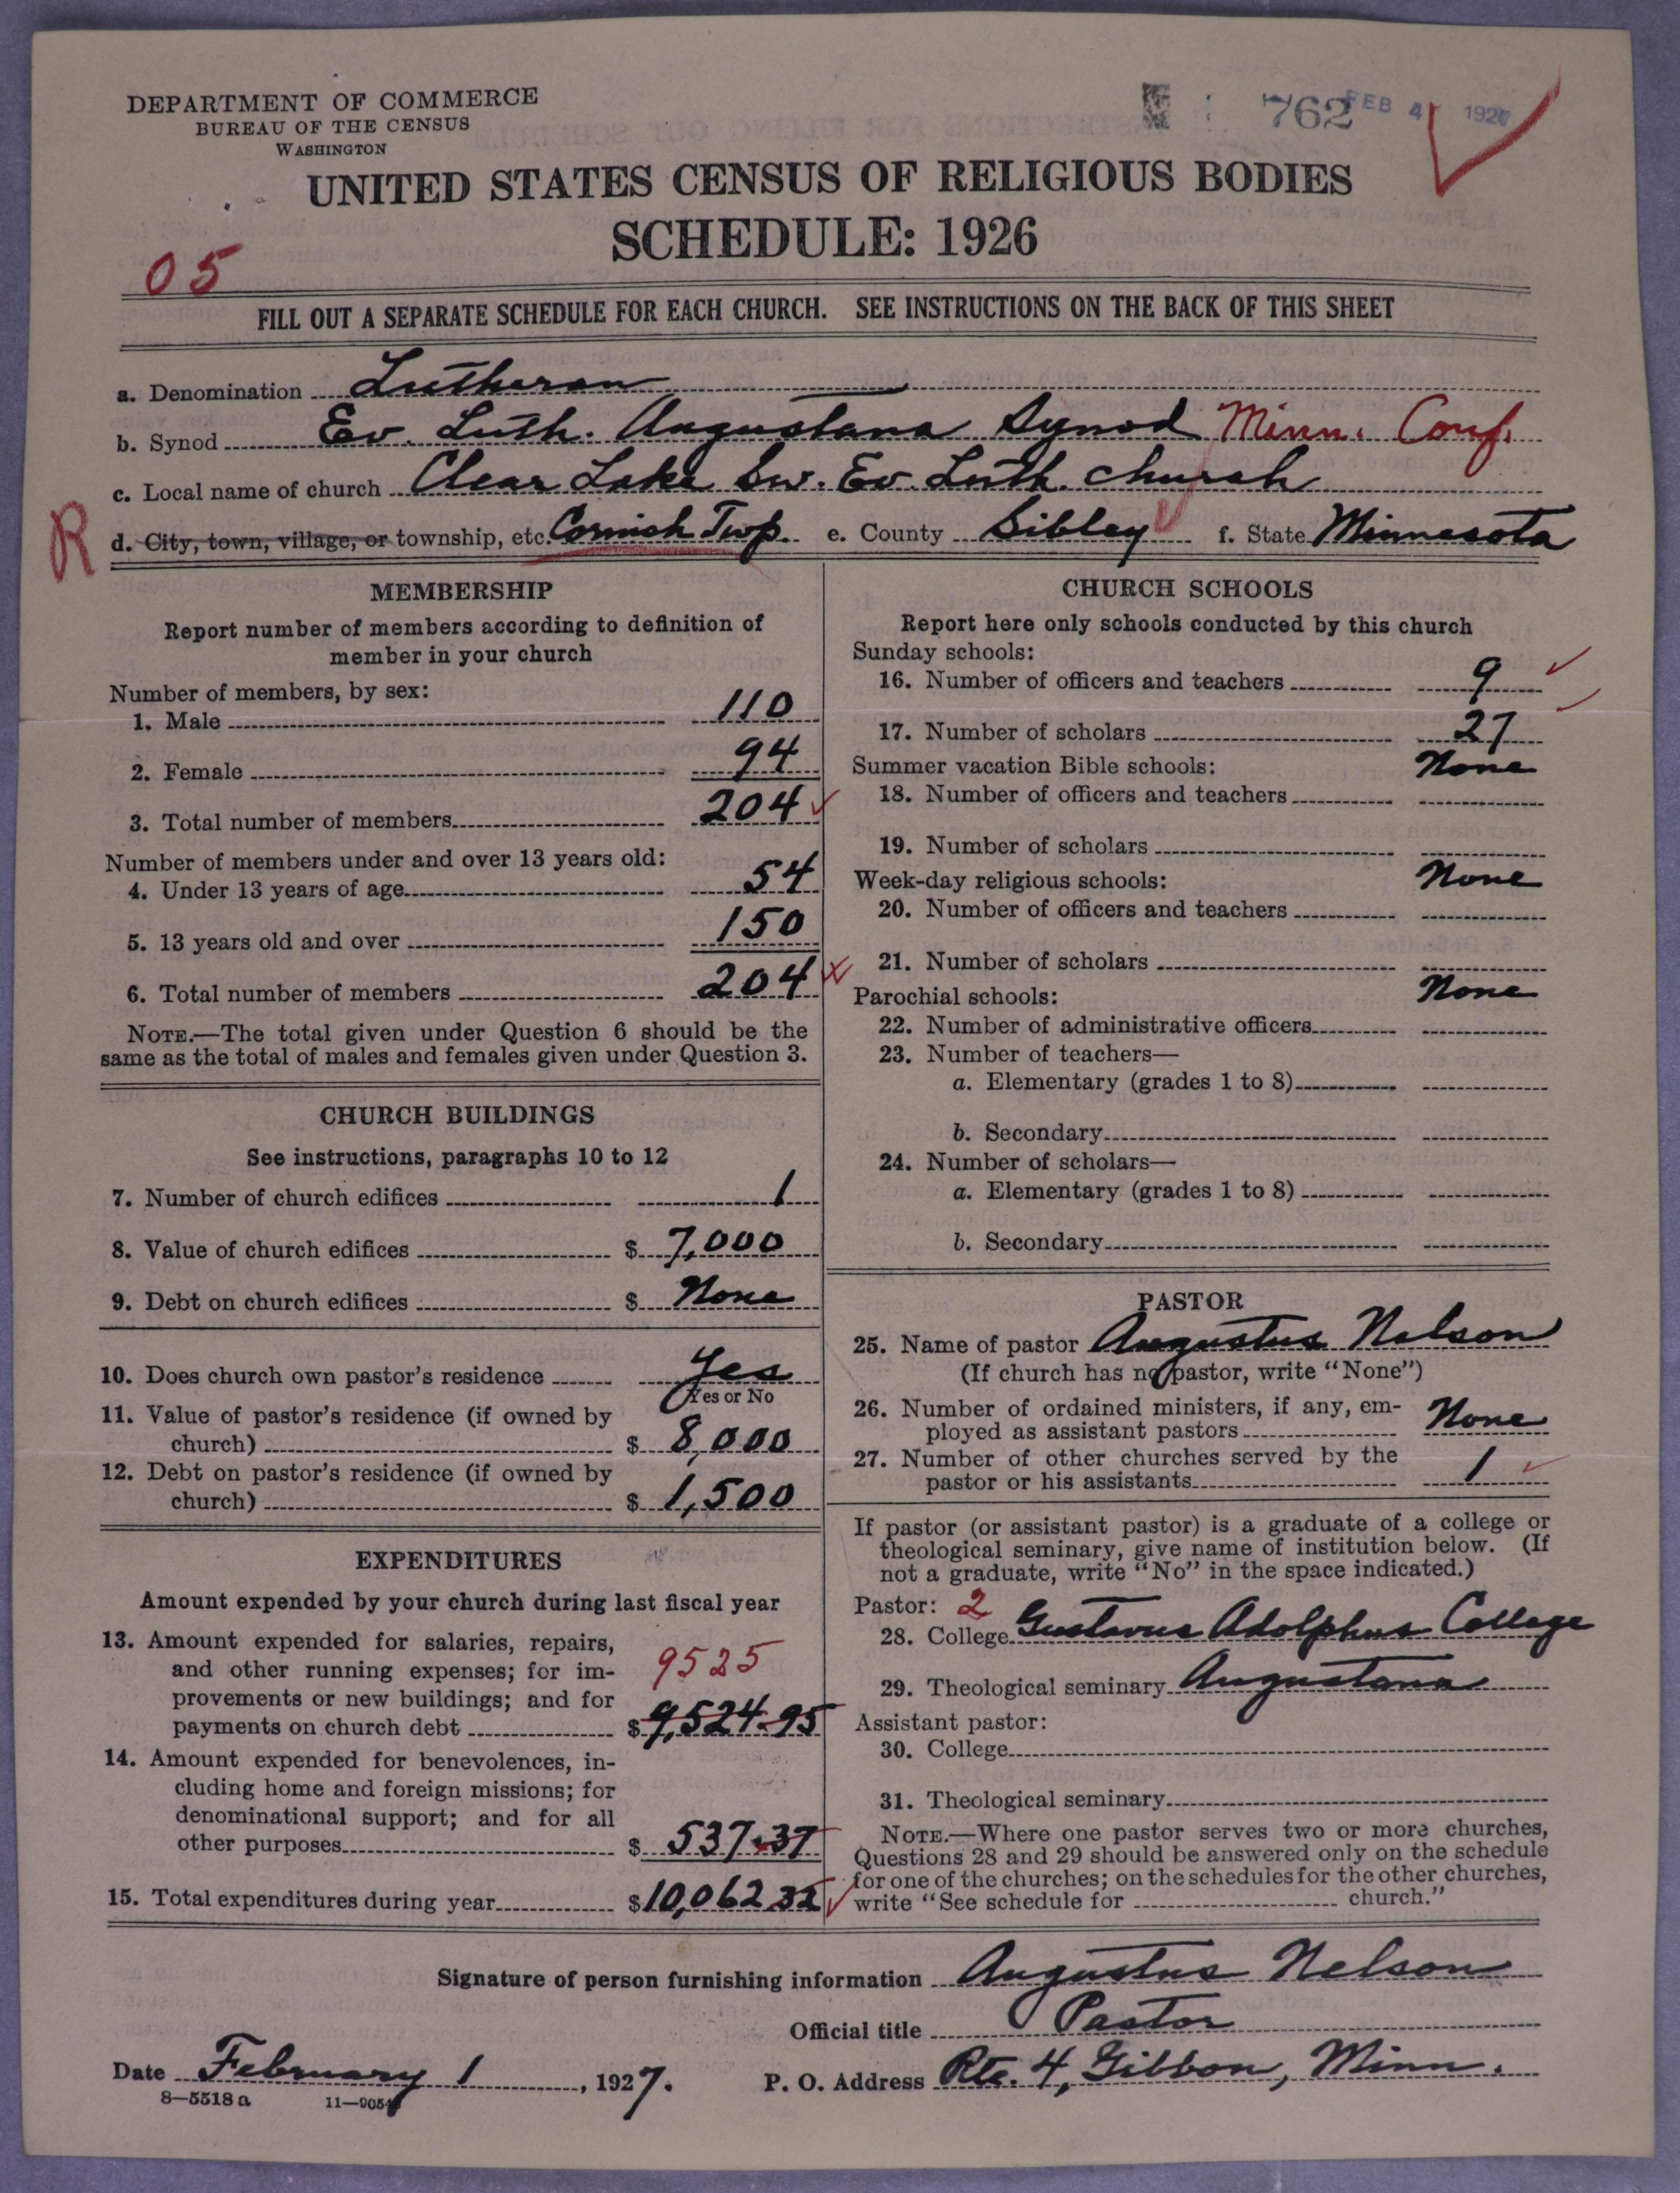 DEPARTMENT OF COMMERCE
BUREAU OF THE CENSUS
WASHINGTON
762 FEB 4 1927
UNITED STATES CENSUS OF RELIGIOUS BODIES
SCHEDULE: 1926
05
FILL OUT A SEPARATE SCHEDULE FOR EACH CHURCH. SEE INSTRUCTIONS ON THE BACK OF THIS SHEET
a. Denomination Lutheran
b. Synod Ev. Luth. Augustana Synod Minn. Conf.
c. Local name of church Clear Lake Sw. Ev. Luth. Church
R
d. City, town, village, or township, etc. Cornish Twp. e. County Sibley f. State Minnesota
MEMBERSHIP
Report number of members according to definition of
member in your church
Number of members, by sex:
1. Male 110
2. Female 94
3. Total number of members 204
Number of members under and over 13 years old:
4. Under 13 years of age 54
5. 13 years old and over 150
6. Total number of members 204
NOTE.—The total given under Question 6 should be the
same as the total of males and females given under Question 3.
CHURCH BUILDINGS
See instructions, paragraphs 10 to 12
7. Number of church edifices 1
8. Value of church edifices $ 7,000
9. Debt on church edifices $ None
10. Does church own pastor's residence Yes
Yes or No
11. Value of pastor's residence (if owned by
church) $ 8,000
12. Debt on pastor's residence (if owned by
church) $ 1,500
EXPENDITURES
Amount expended by your church during last fiscal year
13. Amount expended for salaries, repairs,
and other running expenses; for im- 9525
provements or new buildings; and for
payments on church debt $ 9,524.95
14. Amount expended for benevolences, in-
cluding home and foreign missions; for
denominational support; and for all
other purposes $ 537.37
15. Total expenditures during year $ 10,062.32
CHURCH SCHOOLS
Report here only schools conducted by this church
Sunday schools:
16. Number of officers and teachers 9
17. Number of scholars 27
Summer vacation Bible schools: None
18. Number of officers and teachers
19. Number of scholars
Week-day religious schools: None
20. Number of officers and teachers
21. Number of scholars
Parochial schools: None
22. Number of administrative officers
23. Number of teachers—
a. Elementary (grades 1 to 8)
b. Secondary
24. Number of scholars—
a. Elementary (grades 1 to 8)
b. Secondary
PASTOR
25. Name of pastor Augustus Nelson
(If church has no pastor, write "None")
26. Number of ordained ministers, if any, em-
ployed as assistant pastors None
27. Number of other churches served by the
pastor or his assistants 1
If pastor (or assistant pastor) is a graduate of a college or
theological seminary, give name of institution below. (If
not a graduate, write "No" in the space indicated.)
Pastor: 2
28. College Gustavus Adolphus College
29. Theological seminary Augustana
Assistant pastor:
30. College
31. Theological seminary
NOTE.—Where one pastor serves two or more churches,
Questions 28 and 29 should be answered only on the schedule
for one of the churches; on the schedules for the other churches,
write "See schedule for church."
Signature of person furnishing information Augustus Nelson
Official title Pastor
Date February 1, 1927. P. O. Address Rte. 4, Gibbon, Minn.
8—5518 a